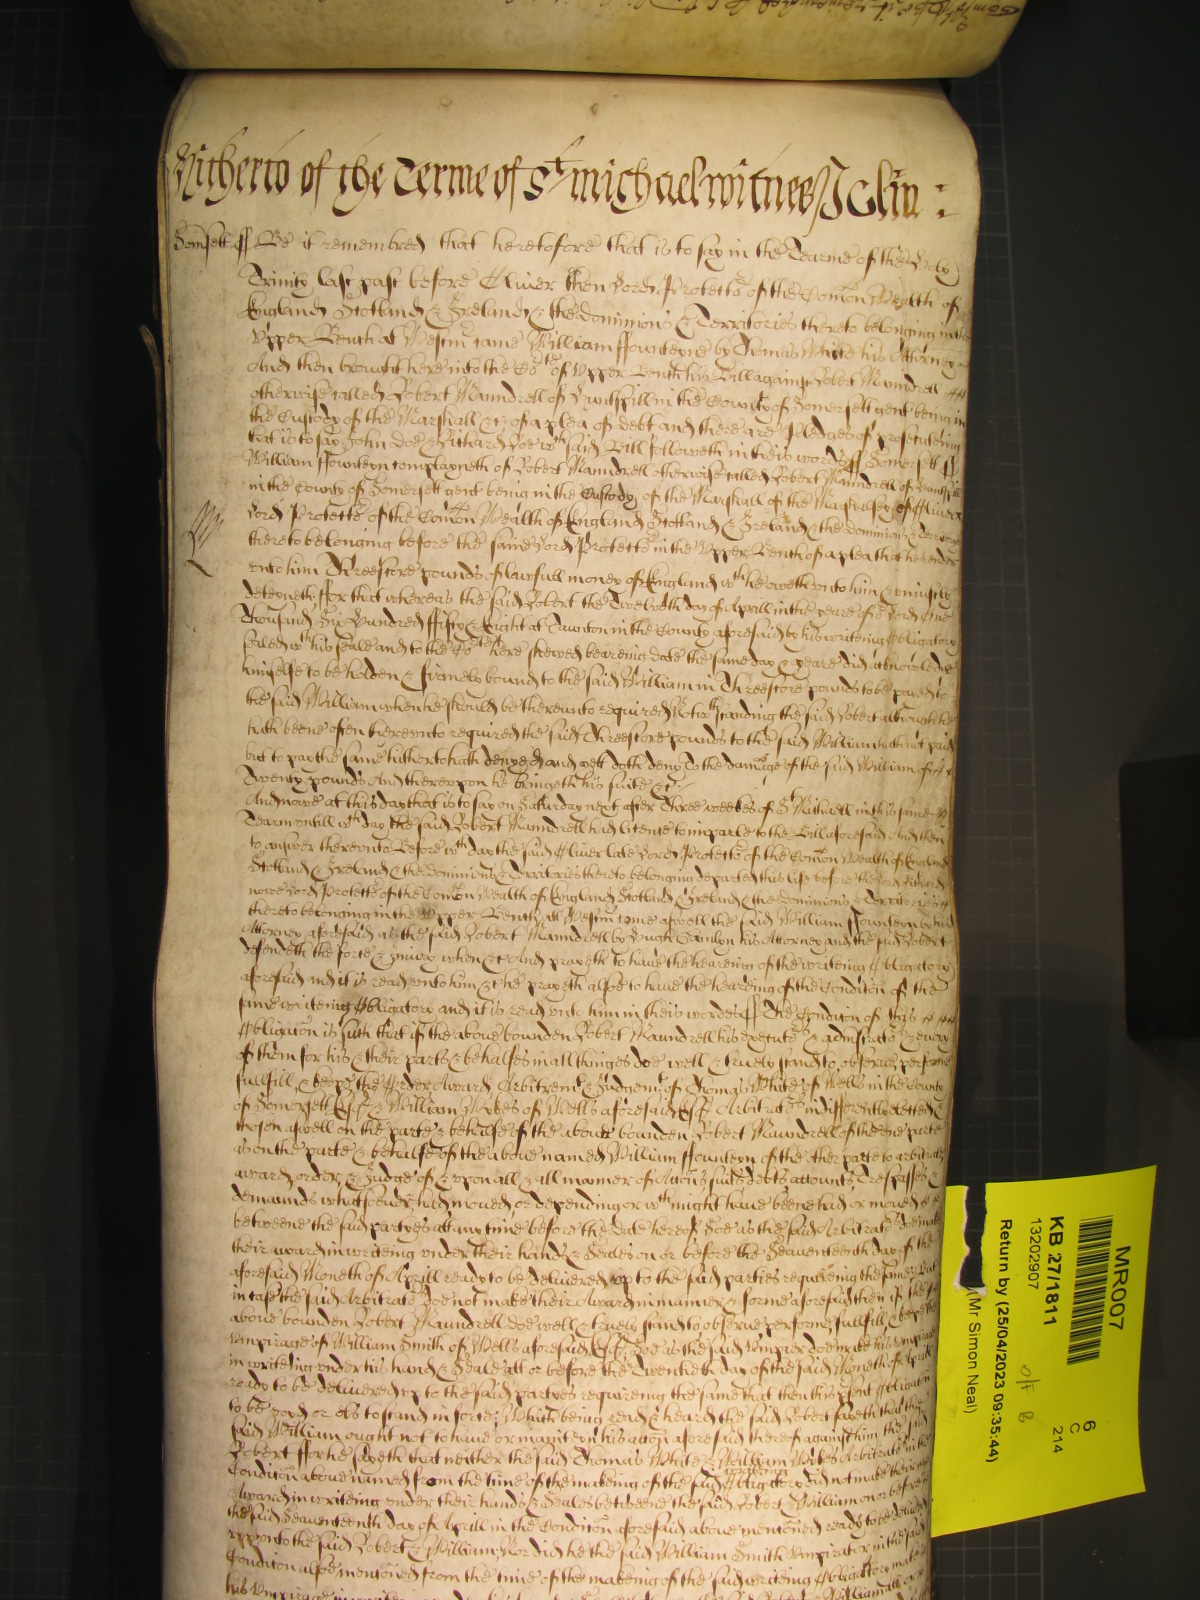 Hitherto of the Terme of St michael witnes J Glin :
Somsett ss Be it remembred that heretofore that is to say in the Tearme of the Holy
Trinity last past before Oliver then Lord Protector of the Comon Wealth of
England Scotland & Ireland & the dominions & Territories thereto belonging in the
Upper Bench at Westmr came William ffounteyne by Thomas White his Attorney
And then brought here into the Cort of Upper Bench his Bill against Robert Maundrell
otherwise called Robert Maundrell of in the County of Somersett gent being in
the Custody of the Marshall &c of a plea of debt and there are Pledges of prosecuteing
that is to say John doe & Richard Roe wch said Bill followeth in theis words ss Somersett ss
William ffounteyn complayneth of Robert Maundrell otherwise called Robert Maundrell of
in the County of Somersett gent being in the Custody of the Marshall of the Marshalsey of Oliver
Lord Protector of the Comon Wealth of England Scotland & Ireland & the dominions & Territories
thereto belonging before the same Lord Protector in the Upper Bench of a plea that he render
unto him Threescore pounds of lawfull money of England wch he oweth unto him & uniustly
deteyneth ffor that whereas the said Robert the Twelveth day of Aprill in the yeare of or Lord One
Thousand Six Hundred ffifty & Eight at Taunton in the County aforesaid by his writeing Obligatory
sealed wth his seale and to the Cort here shewed beareing date the same day & yeare did acknowledge
himselfe to be holden & firmely bound to the said William in Threescore pounds to be payed to
the said William when he should be thereunto required Notwthstanding the said Robert although he
hath beene often thereunto required the said Threescore pounds to the said William hath not paid
but to pay the same hitherto hath denyed and yet doth deny To the damage of the said William of
Twenty pounds And thereupon he bringeth his suite &c
And nowe at this day that is to say on Saturday next after Three weekes of St Michaell in this same
Tearm untill wch day the said Robert Maundrell had licence to imparle to the Bill aforesaid And then
to answer thereunto Before wch day the said Oliver late Lord Protector of the Comon Wealth of England
Scotland & Ireland & the dominions & Territories thereto belonging departed this life before the Lord Richard
nowe Lord Protector of the Comon Wealth of England Scotland & Ireland & the dominions & Territories
thereto belonging in the Upper Bench att Westmr came aswell the said William ffounteyn by his
Attorney aforesaid as the said Robert Maundrell by Hugh his Attorney and the said Robert
defendeth the force & iniury when &c And prayeth to have the heareing of the writeing Obligatory
aforesaid and it is read unto him &c he prayeth alsoe to have the heareing of the Condicon of the
same writeing Obligatory and it is read unto him in theis words ss The Condicon of this
Obligacon is such that if the above bounden Robert Maundrell his executors & administrators & every
of them for his & their parts & behalfes in all thinges doe well & truely stand to observe performe
fullfill & keepe the Order Award Arbitremt & Judgemt of Thomas White of Wells in the County
of Somersett Esqr & William Wykes of Wells aforesaid Esqr Arbitrators indifferently elected &
chosen aswell on the parte & behalfe of the above bounden Robert Maundrell of the one parte
as on the parte & behalfe of the above named William ffounteyn of the other parte to arbitrate
award order & Judge of & upon all & all manner of Accons suits debts accounts Trespasses &
demaunds whatsoever had moved or depending or wch might have beene had or moved
betweene the said partyes att any time before the date hereof Soe as the said Arbitrators doe make
their award in writeing under their hands & Seales on or before the Seaventeenth day of the
aforesaid Moneth of Aprill ready to be delivered up to the said parties requireing the same But
in case the said Arbitrators doe not make their Award in manner & forme aforesaid then if the
above bounden Robert Maundrell doe well & truely stand to observe performe fullfill & keepe the
Umpirage of William Smith of Wells aforesaid Esqr Soe as the said Umpier doe make his Umpirage
in writeing under his hand & Seale att or before the Twentieth day of the said Moneth of Aprill
ready to be delivered up to the said partyes requireing the same that then this psent Obligacon
to be void or els to stand in force Which being read & heard the said Robert sayeth that the
said William ought not to have or mainteyn his accon aforesaid thereof against him the said
Robert ffor he sayeth that neither the said Thomas White & William Wykes Arbitrators in the
Condicon above named from the time of the makeing of the said writeing Obligatory did not make their
Award in writeing under their hands & Seales betweene the said Robert & William on or before
the said Seaventeenth day of Aprill in the Condicon aforesaid above mentioned ready to be delivered
upp unto the said Robert & William Nor did he the said William Smith Umpirator in the said
Condicon alsoe mentioned from the time of the makeing of the said writeing Obligatory make
his Umpirage in writeing
MR007
6
C
214
KB 27/1811
13202907
O/F 8
Return by (25/04/2023 09:35:44)
(Mr Simon Neal)